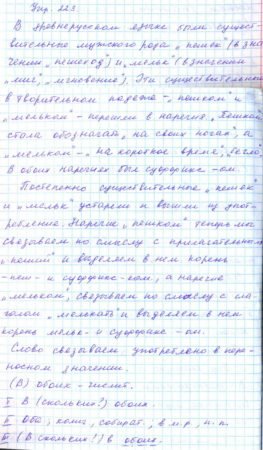 Упр. 223
В древнерусском языке были сущест-
вительные мужского рода „пешек" (в зна-
чении „пешеход") и „мельк" (в значении
„миг", „мгновение"). Эти существительные
в творительном падеже - „пешком" и
„мельком" - перешли в наречия. „Пешком"
стала обозначать „на своих ногах", а
„мельком" - „на короткое время", „бегло".
В обоих наречиях был суффикс -ом.
Постепенно существительные „пешек"
и „мельк" устарели и вышли из упот-
ребления. Наречие „пешком" теперь мы
связываем по смыслу с прилагательным
„пеший" и выделяем в нем корень
-пеш- и суффикс -ком, а наречие
„мельком" связываем по смыслу с гла-
голом „мелькать" и выделяем в нем
корень мельк- и суффикс -ом.
Слово связываем употреблено в пере-
носном значении.
(В) обоих - числит.
I В (скольких?) обоих.
II Оба, колич., собират., в м.р., п.п.
III (В скольких?) в обоих.